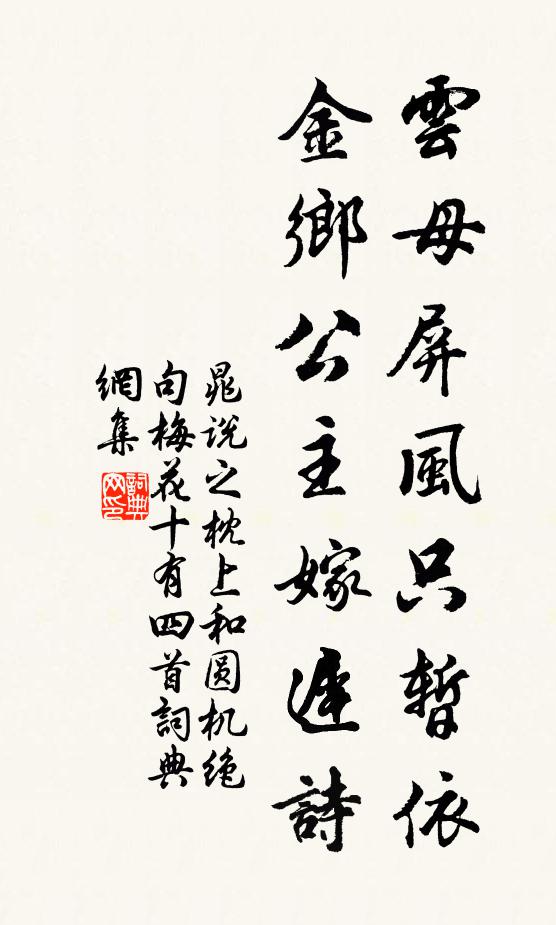 雲母屏風只暫依
金鄉公主嫁遲詩
晁说之枕上和圆机绝
句梅花十有四首詞典
網集
詞典網印